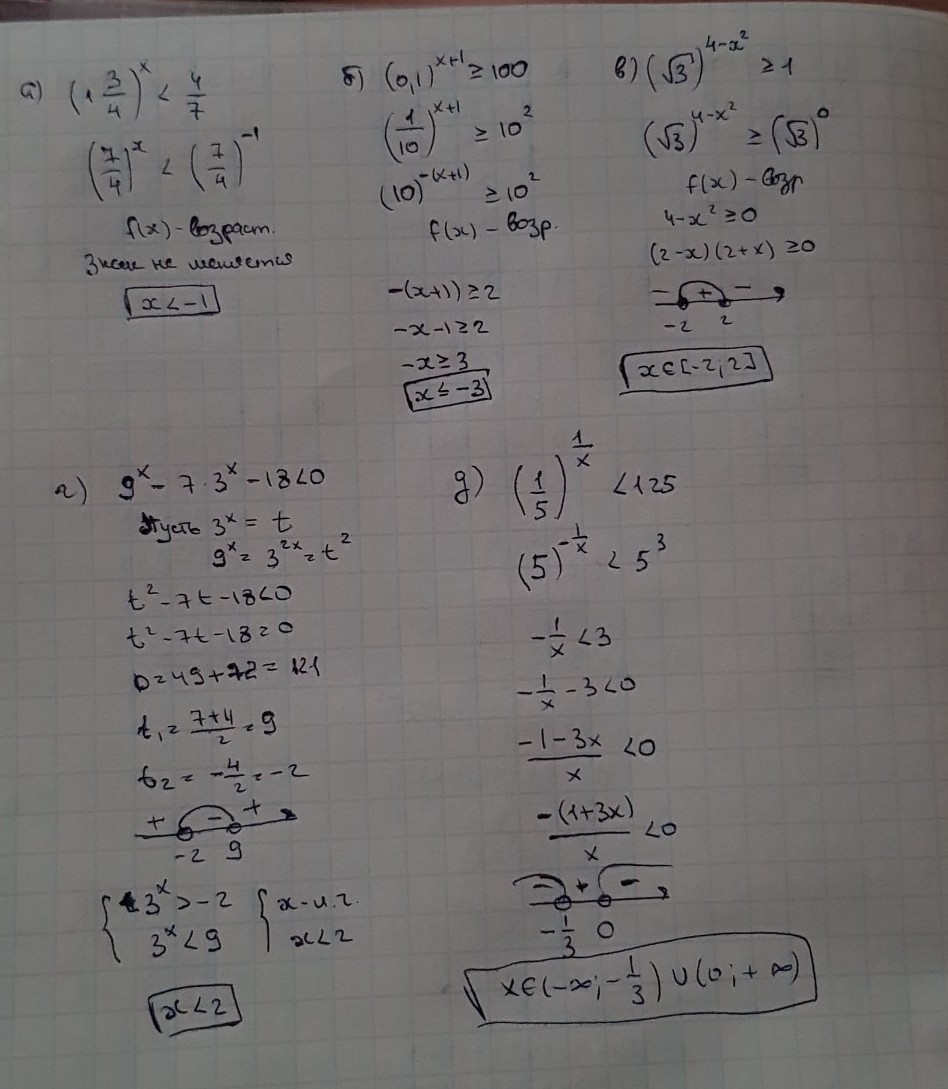 а) (1 3/4)^x < 4/7
(7/4)^x < (7/4)^-1
f(x) - возраст.
Знак не меняется
x < -1
б) (0,1)^x+1 ≥ 100
(1/10)^x+1 ≥ 10^2
(10)^-(x+1) ≥ 10^2
f(x) - возр.
-(x+1)) ≥ 2
-x-1 ≥ 2
-x ≥ 3
x ≤ -3
в) (√3)^4-x² ≥ 1
(√3)^4-x² ≥ (√3)^0
f(x) - возр
4-x² ≥ 0
(2-x)(2+x) ≥ 0
- + -
-2 2
x ∈ [-2; 2]
г) 9^x - 7·3^x - 18 < 0
Пусть 3^x = t
9^x = 3^2x = t²
t² - 7t - 18 < 0
t² - 7t - 18 = 0
D = 49 + 72 = 121
t₁ = (7+4)/2 = 9
t₂ = -4/2 = -2
+ - +
-2 9
{ 3^x > -2 { x - и.г.
3^x < 9 x < 2
x < 2
д) (1/5)^1/x < 125
(5)^-1/x < 5^3
-1/x < 3
-1/x - 3 < 0
(-1-3x)/x < 0
-(1+3x)/x < 0
- + -
-1/3 0
x ∈ (-∞; -1/3) ∪ (0; +∞)